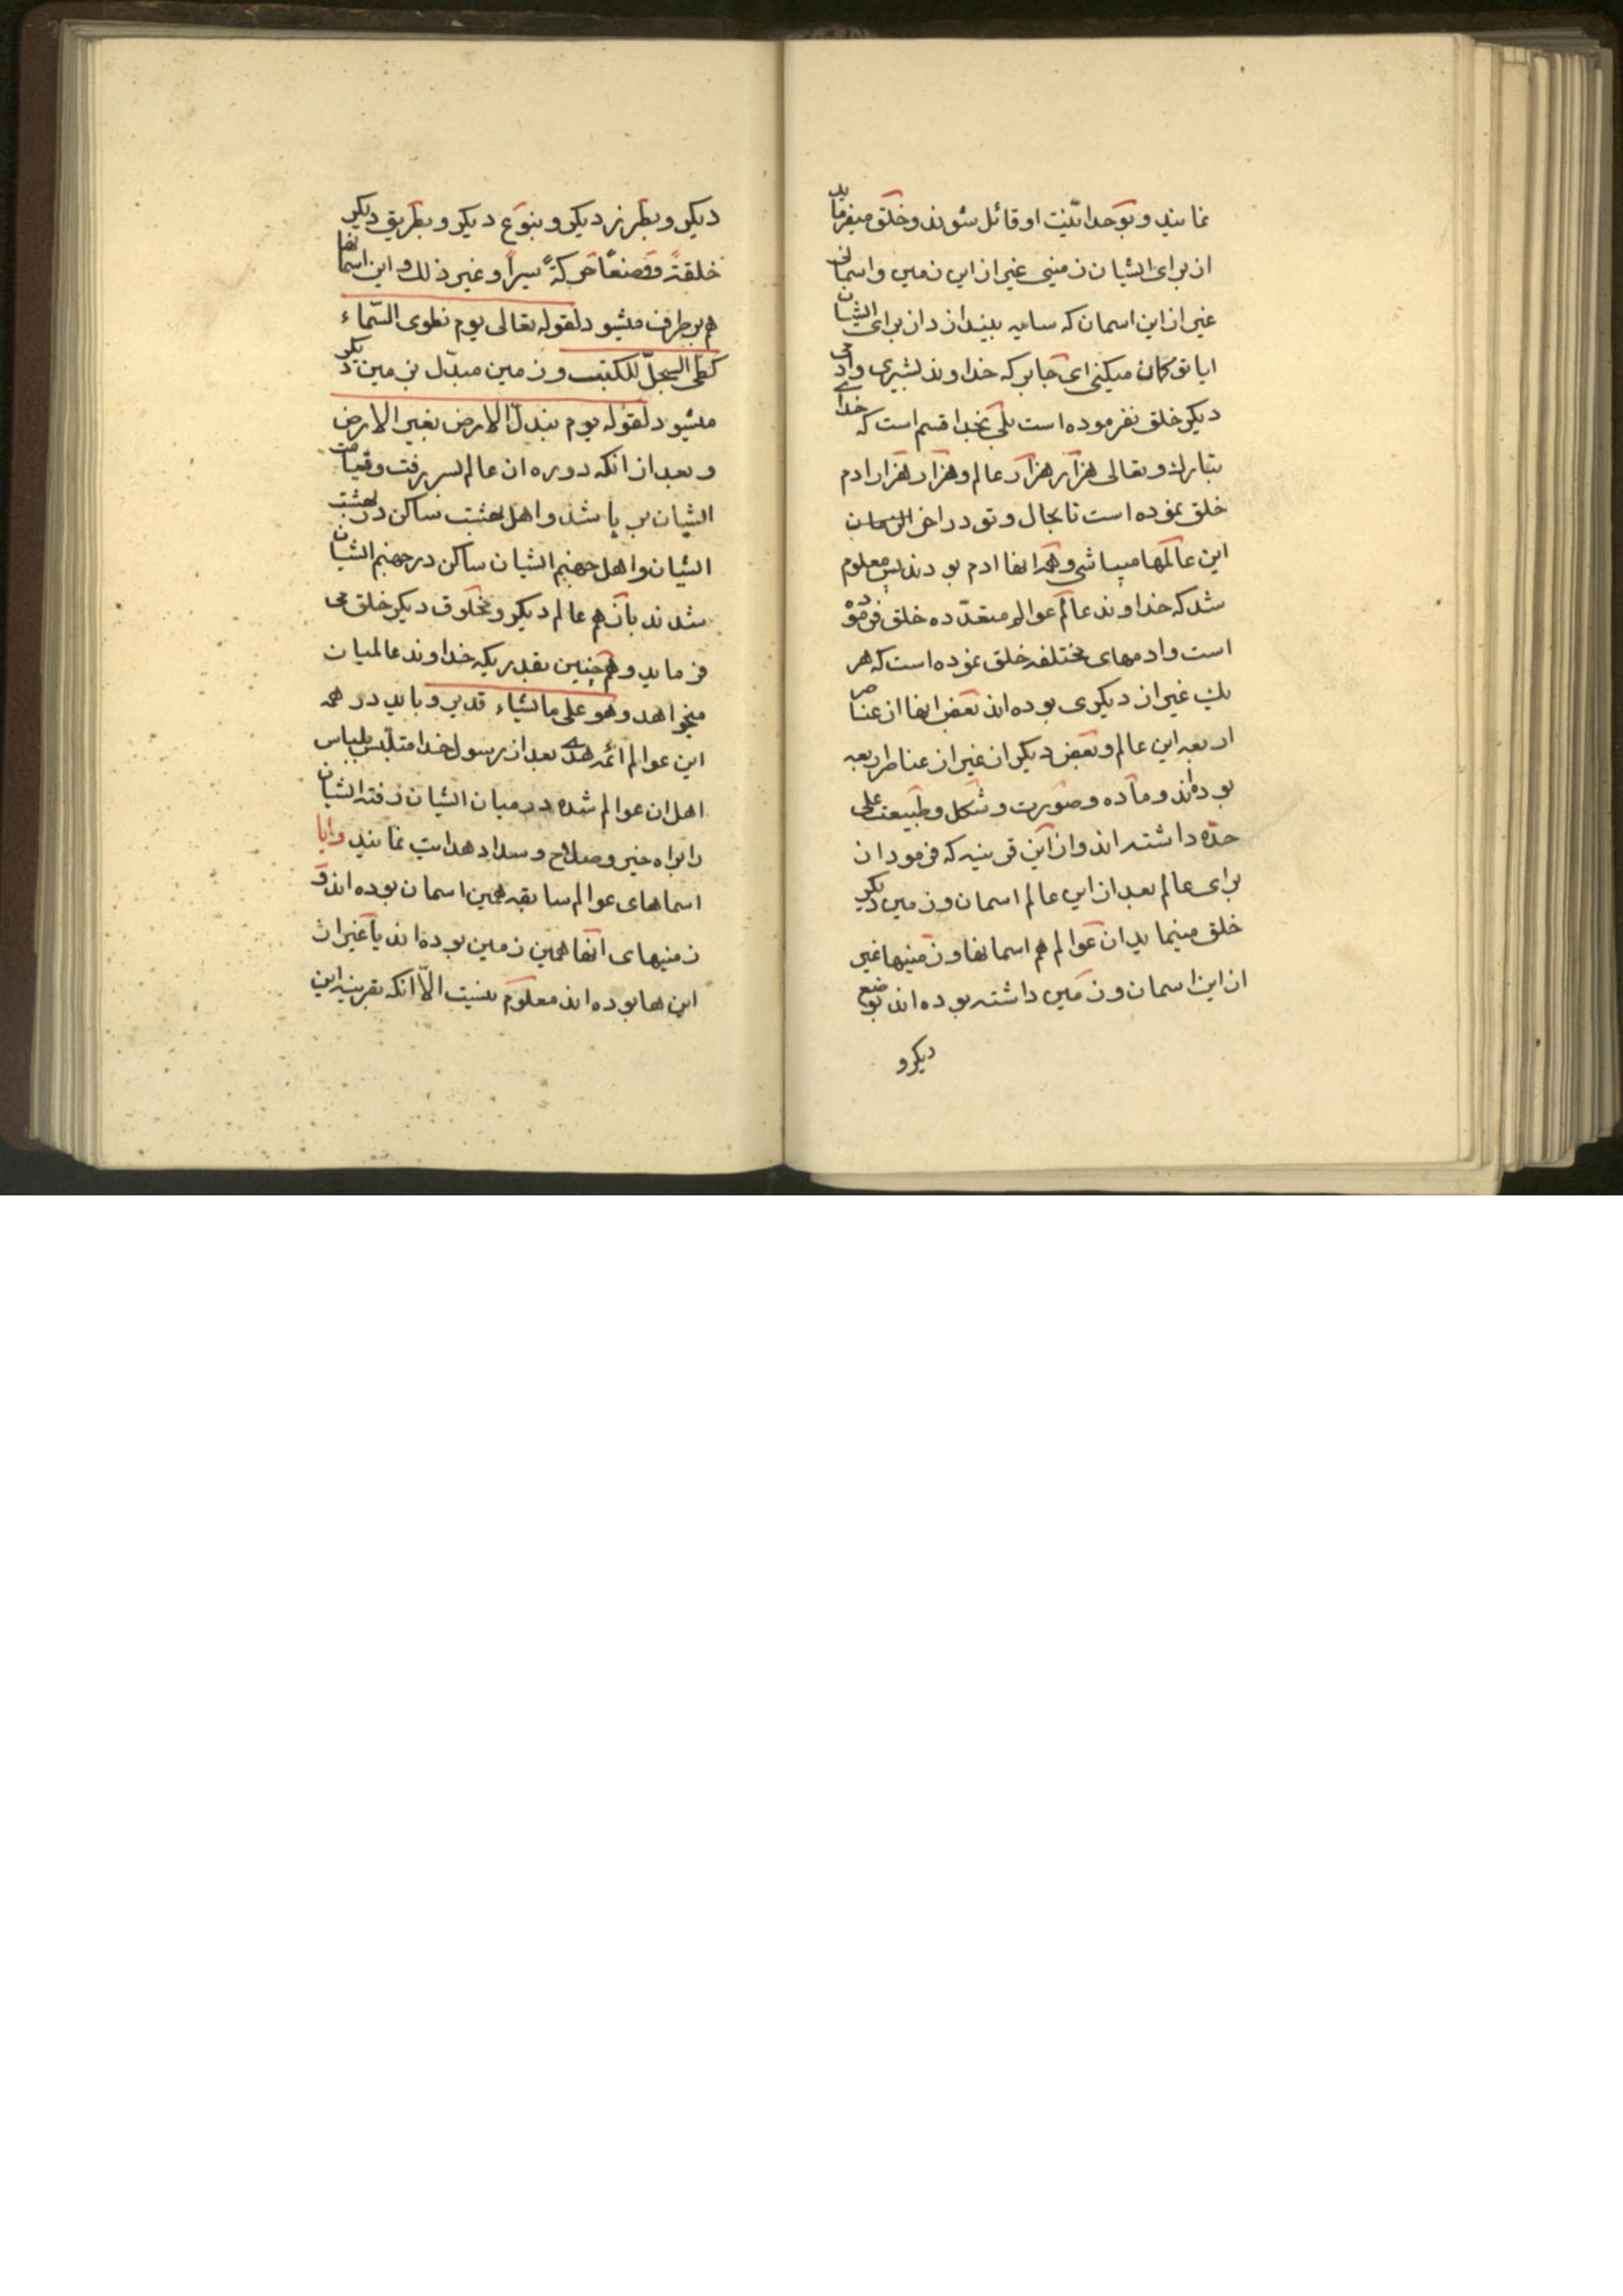 نمایند و بوحدانیت او قائل شوند و خلق میفرماید
از برای ایشان زمینی غیر از این زمین و اسمانی
غیر از این اسمان که سایه بیندازد از برای ایشان
ایا تو کمان میکنی ای جابر که خداوند بشری و ادمی
دیکر خلق نفرموده است بلی بخدا قسم است که خدای
تبارک و تعالی هزار هزار عالم و هزار هزار ادم
خلق نموده است تا بحال و تو در اخر
این عالمها میباشی و همه انها ادم بودند پس معلوم
شد که خداوند عالم عوالم متعدّده خلق فرموده
است و ادمهای مختلفه خلق نموده است که هر
یک غیر از دیکری بوده اند بعض انها از عناصر
اربعه این عالم و بعض دیکر از غیر از عناصر اربعه
بوده اند و مادّه و صورت و شکل و طبیعت علی
حدّه داشته اند و از این قرینه که فرمود از
برای عالم بعد از این عالم اسمان و زمین دیکر
خلق مینماید ان عوالم هم اسمانها و زمینها غیر
از این اسمان و زمین داشته بوده اند بوضع
دیکر و
دیکر و بطرز دیکر و بنوع دیکر و بطریق دیکر
خلقةً و وصنعًا حرکةً سیراً و غیر ذلک و این اسمانها
هم برطرف میشود لقوله تعالی یوم نطوی السّماء
کطیّ السجلّ للکتب و زمین مبدّل بزمین دیکر
میشود لقوله یوم تبدلّ الارض بغیر الارض
و بعد از انکه دوره ان عالم بسر رفت و قیامت
ایشان بر پا شد و اهل بهشت ساکن در بهشت
ایشان و اهل جهنم ایشان ساکن در جهنم ایشان
شدند باز هم عالم دیکر و مخلوق دیکر خلق می
فرماید و همچنین بقدریکه خداوند عالمیان
میخواهد و هو علی ما یشاء قدیر و باید در همه
این عوالم ائمه هدی بعد از رسول خدا متلبّس بلباس
اهل ان عوالم شده در میان ایشان رفته ایشان
را براه خیر و صلاح و سداد هدایت نمایند و ایا
اسماهای عوالم سابقه همین اسمان بوده اند و
زمنیهای انها همین زمین بوده اند یا غیر از
این ها بوده اند معلوم نیست الّا انکه بقرینه این